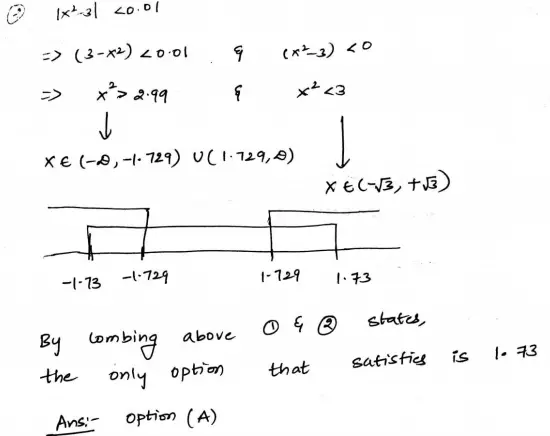 |x²-3| <0.01
=> (3-x²) <0.01 & (x²-3) <0
=> x²> 2.99 & x² <3
x ∈ (-∞, -1.729) ∪ (1.729, ∞)
x ∈ (-√3, +√3)
-1.73 -1.729 1.729 1.73
By combing above ① & ② states,
the only option that satisfies is 1.73
Ans:- option (A)